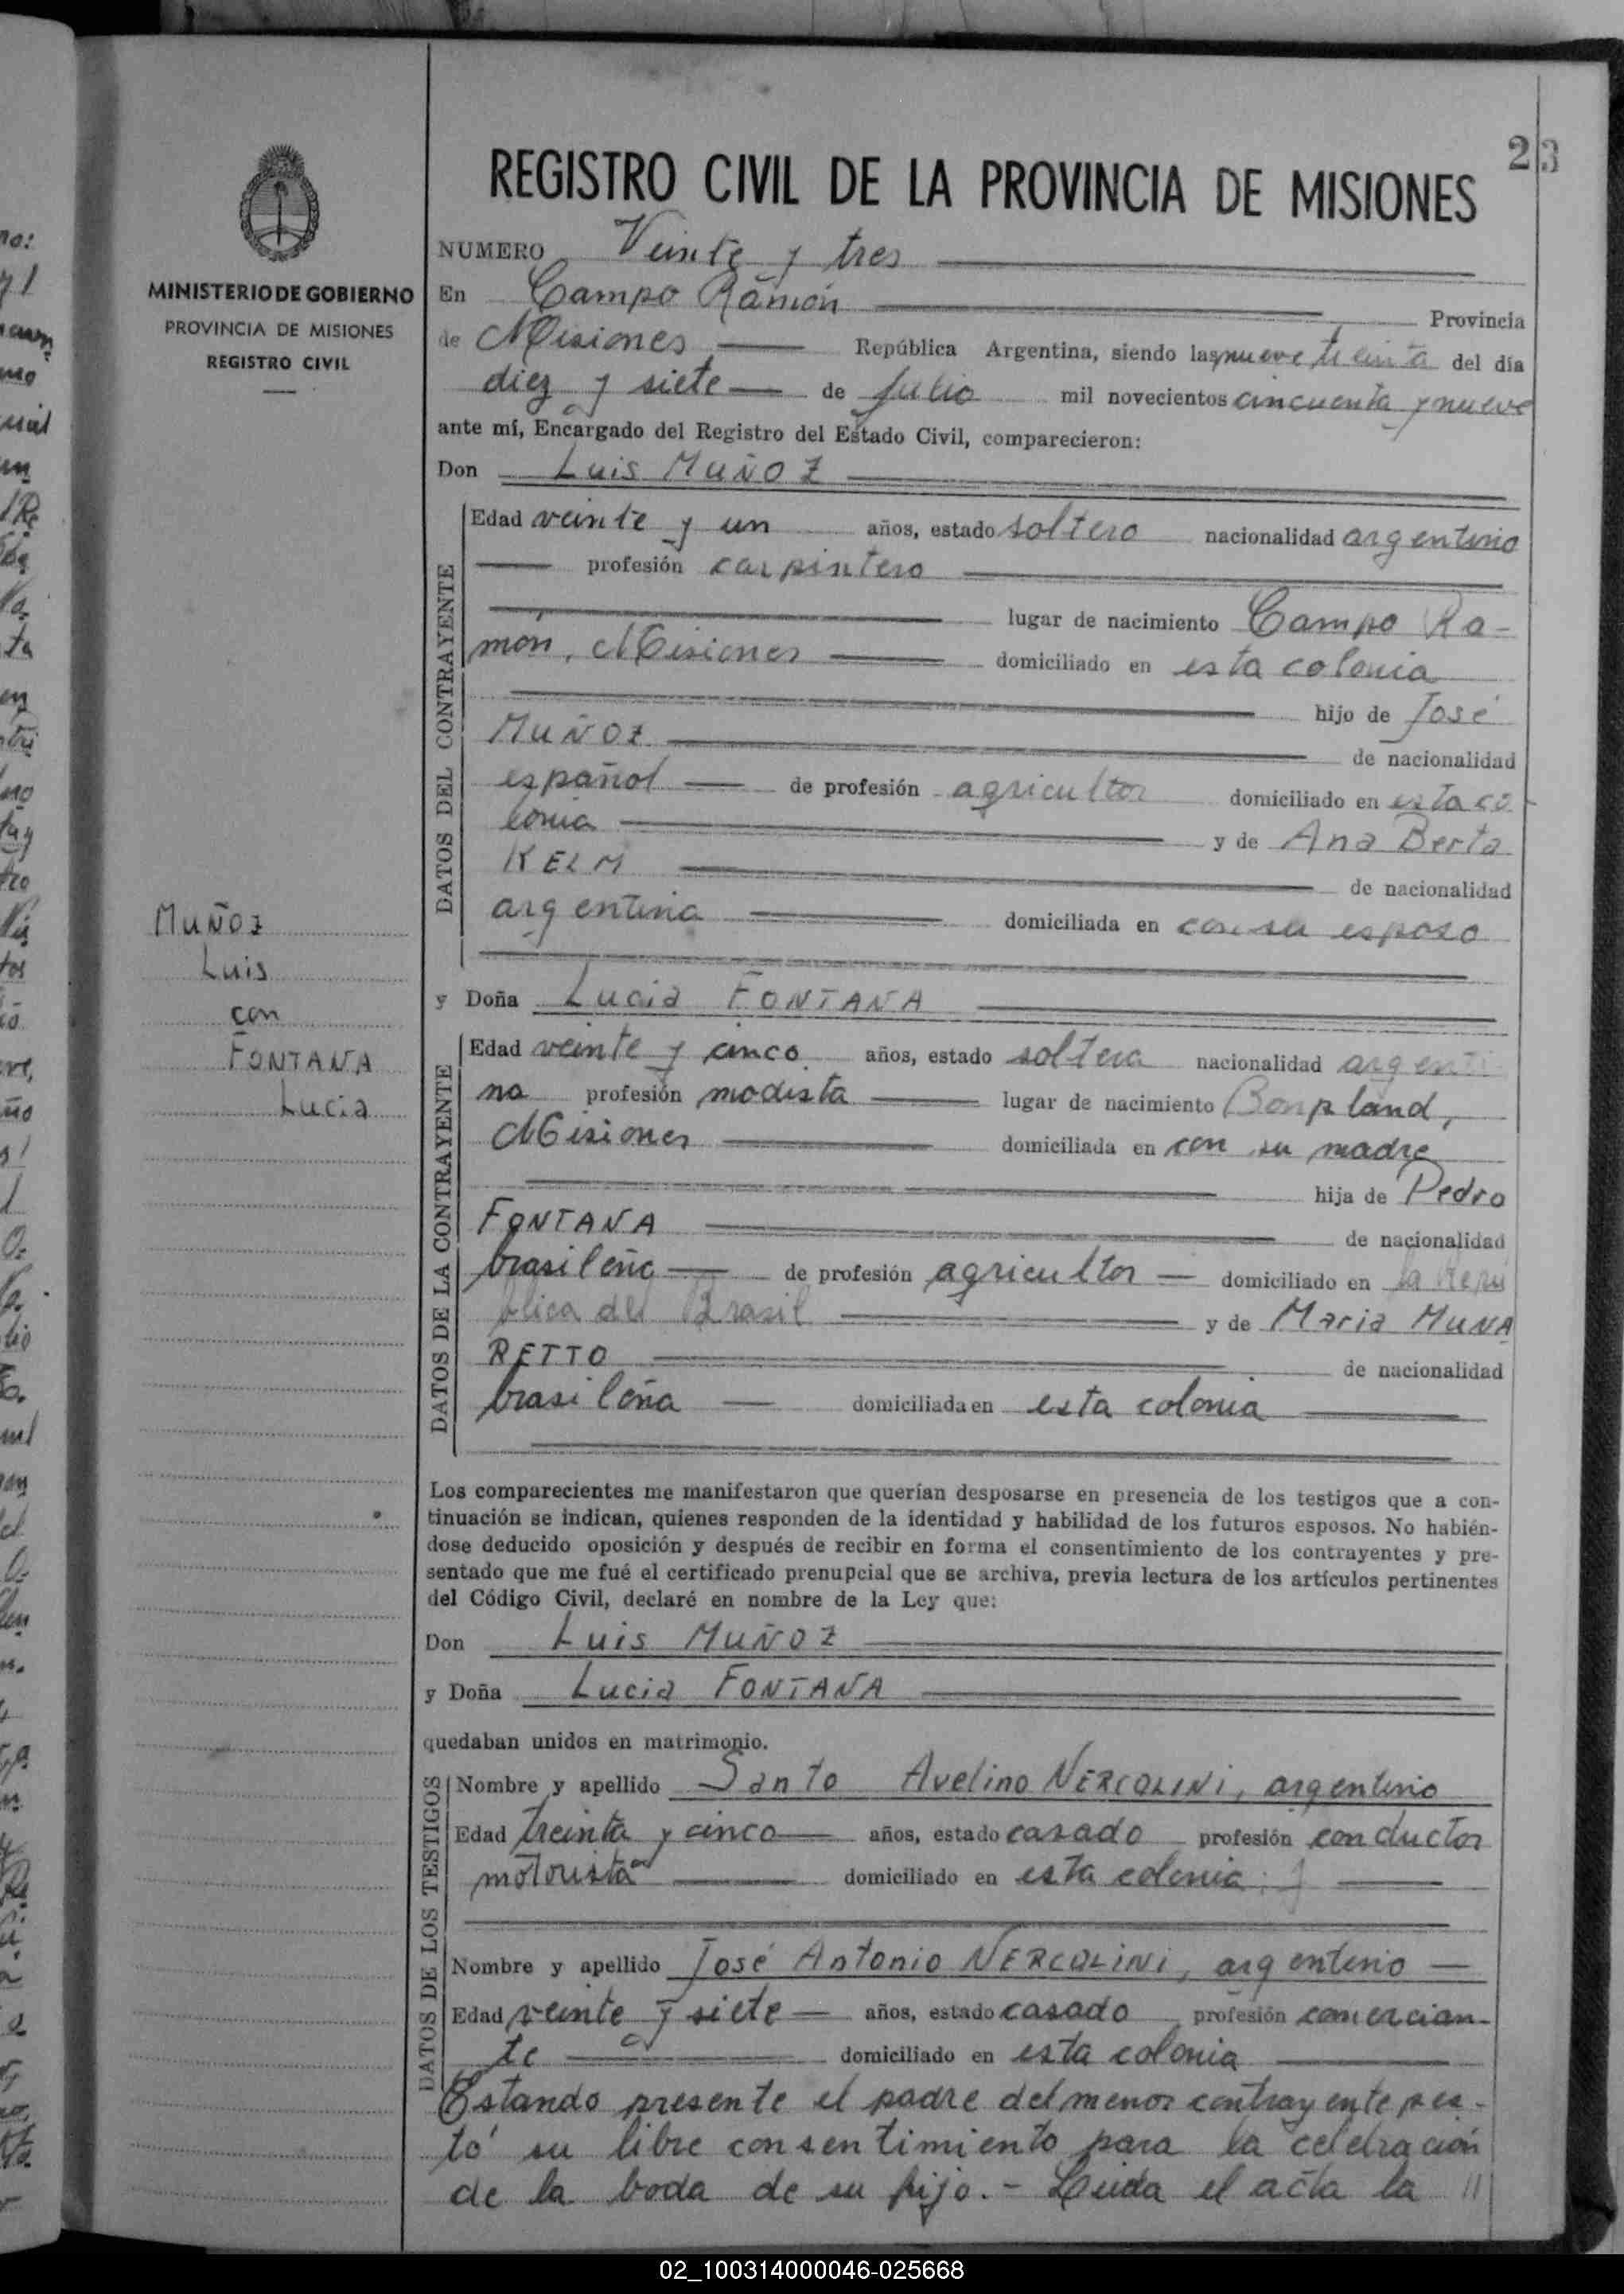 23
REGISTRO CIVIL DE LA PROVINCIA DE MISIONES
MINISTERIO DE GOBIERNO
PROVINCIA DE MISIONES
REGISTRO CIVIL
NUMERO Veinte y tres
En Campo Ramón Provincia
de Misiones República Argentina, siendo las nueve treinta del día
diez y siete de Julio mil novecientos cincuenta y nueve
ante mí, Encargado del Registro del Estado Civil, comparecieron:
Don Luis MUÑOZ
DATOS DEL CONTRAYENTE
Edad veinte y un años, estado soltero nacionalidad argentino
profesión carpintero
lugar de nacimiento Campo Ra-
món, Misiones domiciliado en esta colonia
hijo de José
MUÑOZ de nacionalidad
español de profesión agricultor domiciliado en esta co-
lonia y de Ana Berta
KELM de nacionalidad
argentina domiciliada en con su esposo
MUÑOZ
Luis
con
FONTANA
Lucia
y Doña Lucia FONTANA
DATOS DE LA CONTRAYENTE
Edad veinte y cinco años, estado soltera nacionalidad argenti
na profesión modista lugar de nacimiento Bonpland,
Misiones domiciliada en con su madre
hija de Pedro
FONTANA de nacionalidad
brasileño de profesión agricultor domiciliado en la Repú
blica del Brasil y de Maria MUNA
RETTO de nacionalidad
brasileña domiciliada en esta colonia
Los comparecientes me manifestaron que querían desposarse en presencia de los testigos que a con-
tinuación se indican, quienes responden de la identidad y habilidad de los futuros esposos. No habién-
dose deducido oposición y después de recibir en forma el consentimiento de los contrayentes y pre-
sentado que me fué el certificado prenupcial que se archiva, previa lectura de los artículos pertinentes
del Código Civil, declaré en nombre de la Ley que:
Don Luis MUÑOZ
y Doña Lucia FONTANA
quedaban unidos en matrimonio.
DATOS DE LOS TESTIGOS
Nombre y apellido Santo Avelino NERCOLINI, argentino
Edad treinta y cinco años, estado casado profesión conductor
motorista domiciliado en esta colonia; y
Nombre y apellido José Antonio NERCOLINI, argentino
Edad veinte y siete años, estado casado profesión comercian-
te domiciliado en esta colonia
Estando presente el padre del menor contrayente pres-
tó su libre consentimiento para la celebración
de la boda de su hijo.- Leida el acta la //
02_100314000046-025668